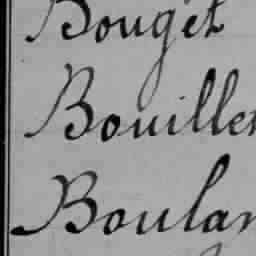 Bouget
Bouiller
Boulan